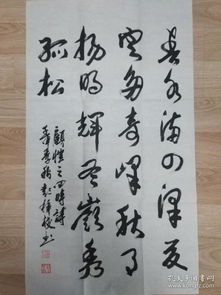 春水满四泽夏
云多奇峰秋月
扬明辉冬岭秀
孤松
顾恺之四时诗